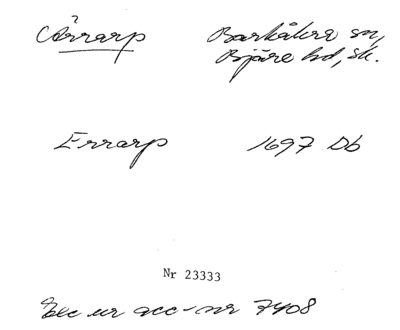 Ärrarp Barkåkra sn,
Bjäre hd, Sk.
Errarp 1697 Db
Nr 23333
Exc ur acc-nr 7408